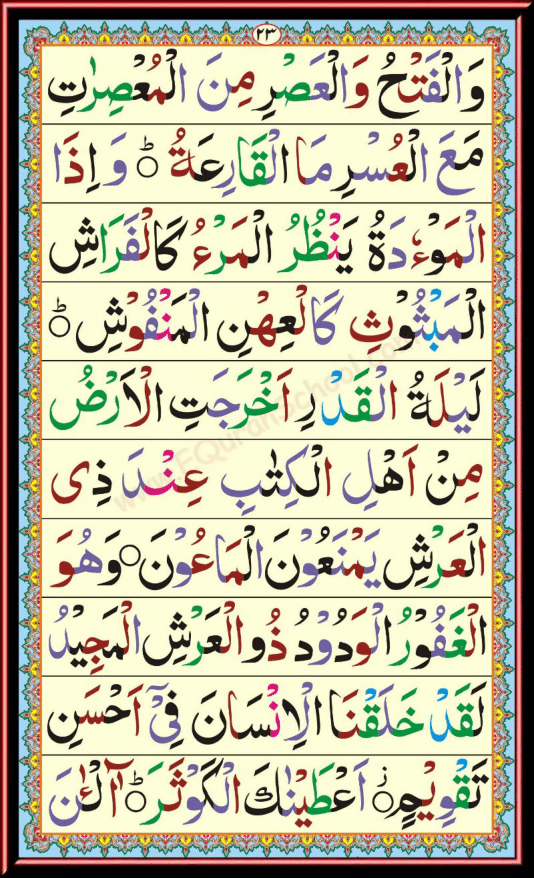 ٢٣
وَالْفَتْحُ وَالْعَصْرِ مِنَ الْمُعْصِرٰتِ
مَعَ الْعُسْرِ مَا الْقَارِعَةُ ؕ وَ اِذَا
الْمَوْءٗدَةُ يَنْظُرُ الْمَرْءُ كَالْفَرَاشِ
الْمَبْثُوْثِ كَالْعِهْنِ الْمَنْفُوْشِ ؕ
لَيْلَةُ الْقَدْرِ اَخْرَجَتِ الْاَرْضُ
مِنْ اَهْلِ الْكِتٰبِ عِنْدَ ذِى
الْعَرْشِ يَمْنَعُوْنَ الْمَاعُوْنَ ۝ وَهُوَ
الْغَفُوْرُ الْوَدُوْدُ ذُو الْعَرْشِ الْمَجِيْدُ
لَقَدْ خَلَقْنَا الْاِنْسَانَ فِىْۤ اَحْسَنِ
تَقْوِيْمٍ ۝ اَعْطَيْنٰكَ الْكَوْثَرَ ؕ آٰلْـٰٔنَ
www.eQuranSchool.com